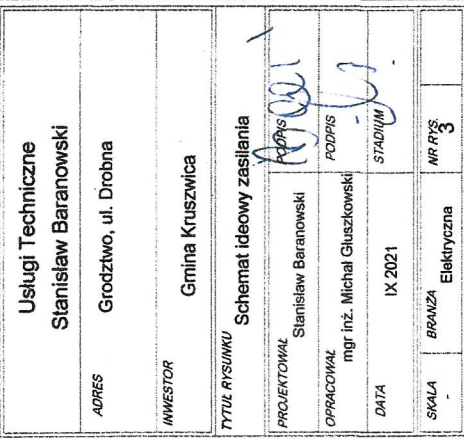 Usługi Techniczne
Stanisław Baranowski
ADRES
Grodztwo, ul. Drobna
INWESTOR
Gmina Kruszwica
TYTUŁ RYSUNKU
Schemat ideowy zasilania
PROJEKTOWAŁ
Stanisław Baranowski
PODPIS
OPRACOWAŁ
mgr inż. Michał Głuszkowski
PODPIS
DATA
IX 2021
STADIUM
-
SKALA
-
BRANŻA
Elektryczna
NR RYS.
3